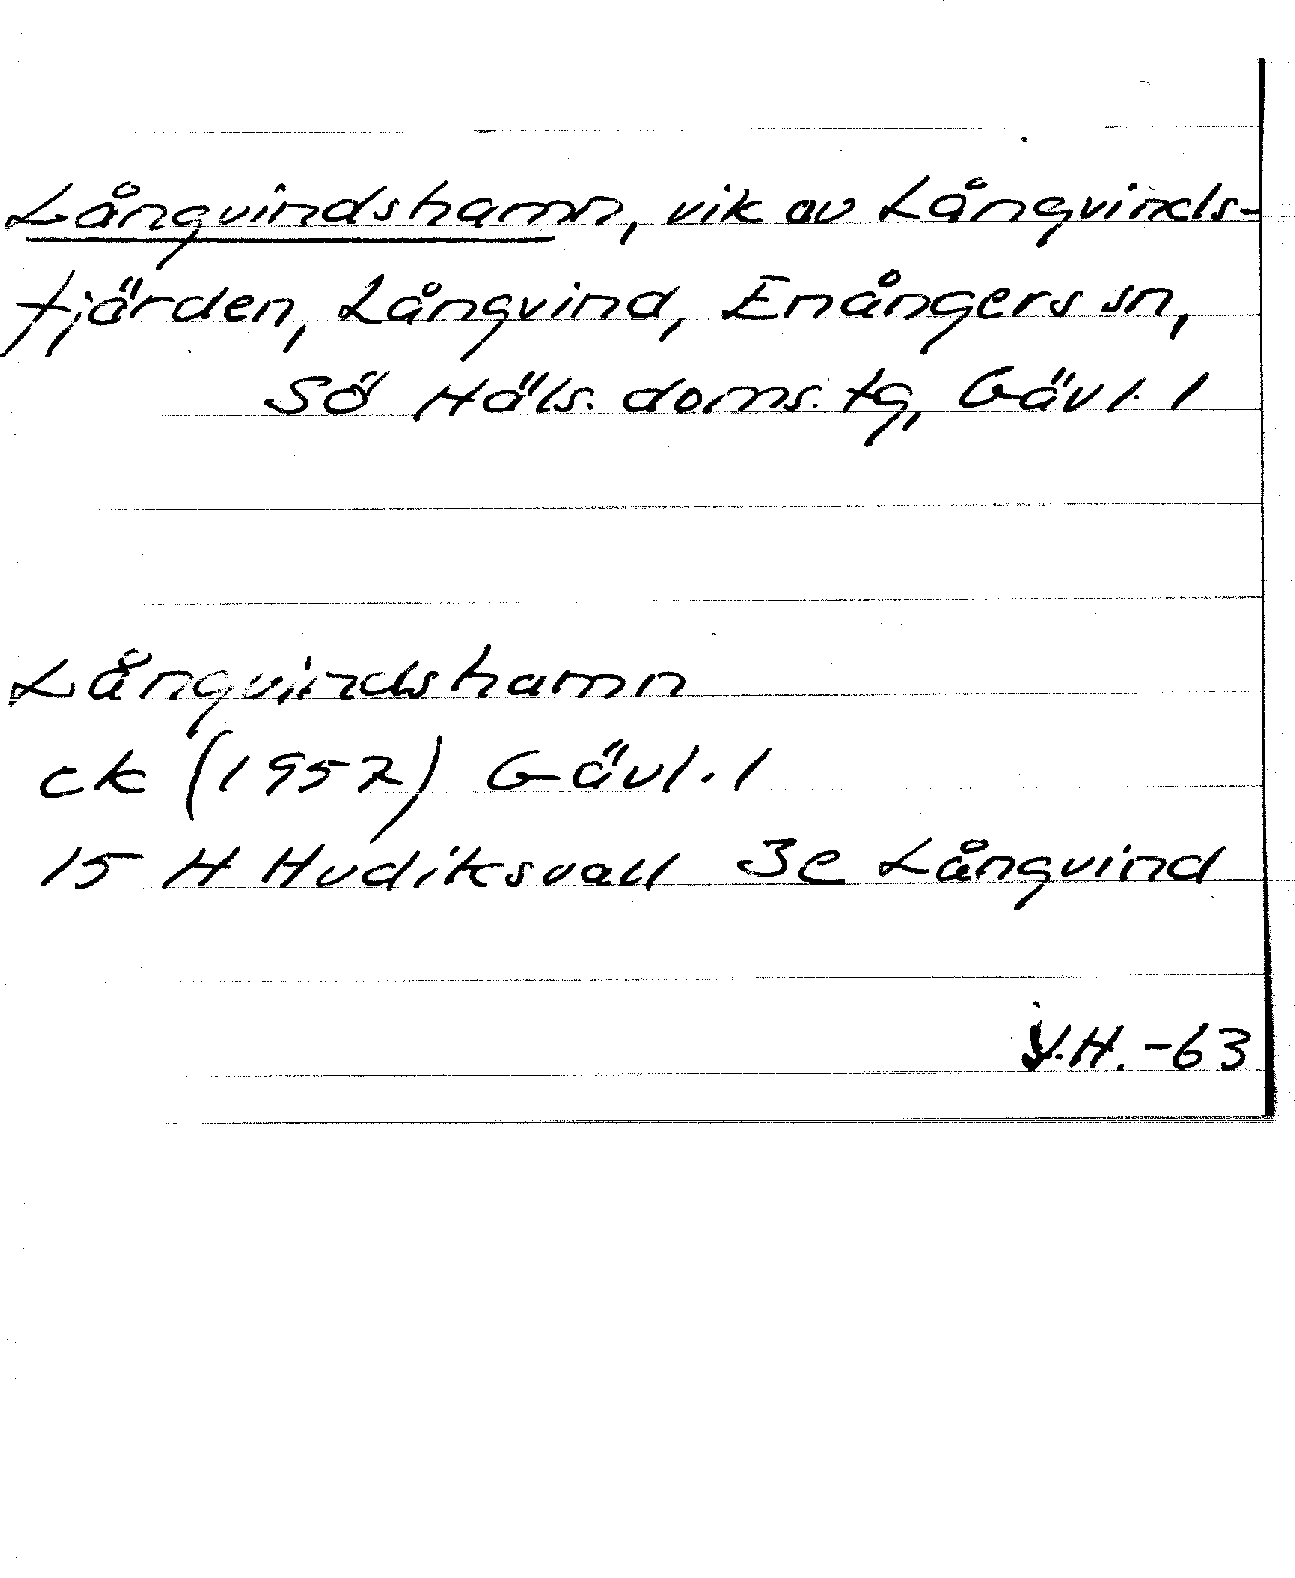 Långvindshamn, vik av Långvinds-
fjärden, Långvind, Enångers sn,
Sö Häls. doms. tg, Gävl. l
Långvindshamn
ek (1957) Gävl. l
15 H Hudiksvall 3e Långvind
V.H. -63